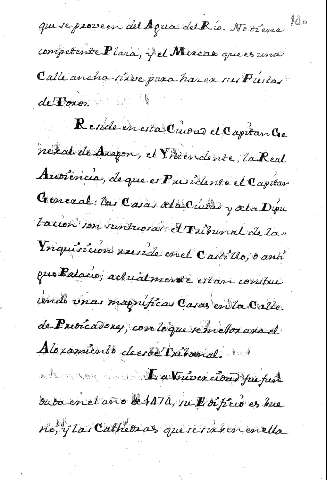 que se proveen del Agua del Rio. No tiene
competente Plaza, y el Mercao que es una
Calle ancha sirve para hazer sus Fiestas
de Toros.
Reside en esta Ciudad el Capitan Ge
neral de Aragon, el Yntendente, la Real
Audiencia, de que es Presidente el Capitan
General: las Casas de la Ciudad y de la Dipu
tacion son suntuosas: el Tribunal de la
Ynquisicion reside en el Castillo, o anti
guo Palacio; actualmente estan constru
iendo unas magnificas Casas en la Calle
de Predicadores, con lo que se mejorara el
Aloxamiento de este Tribunal.
La Universidad fue fun
dada en el año de 1474, su Edificio es bue
no, y las Cathedras que se sirven en ella